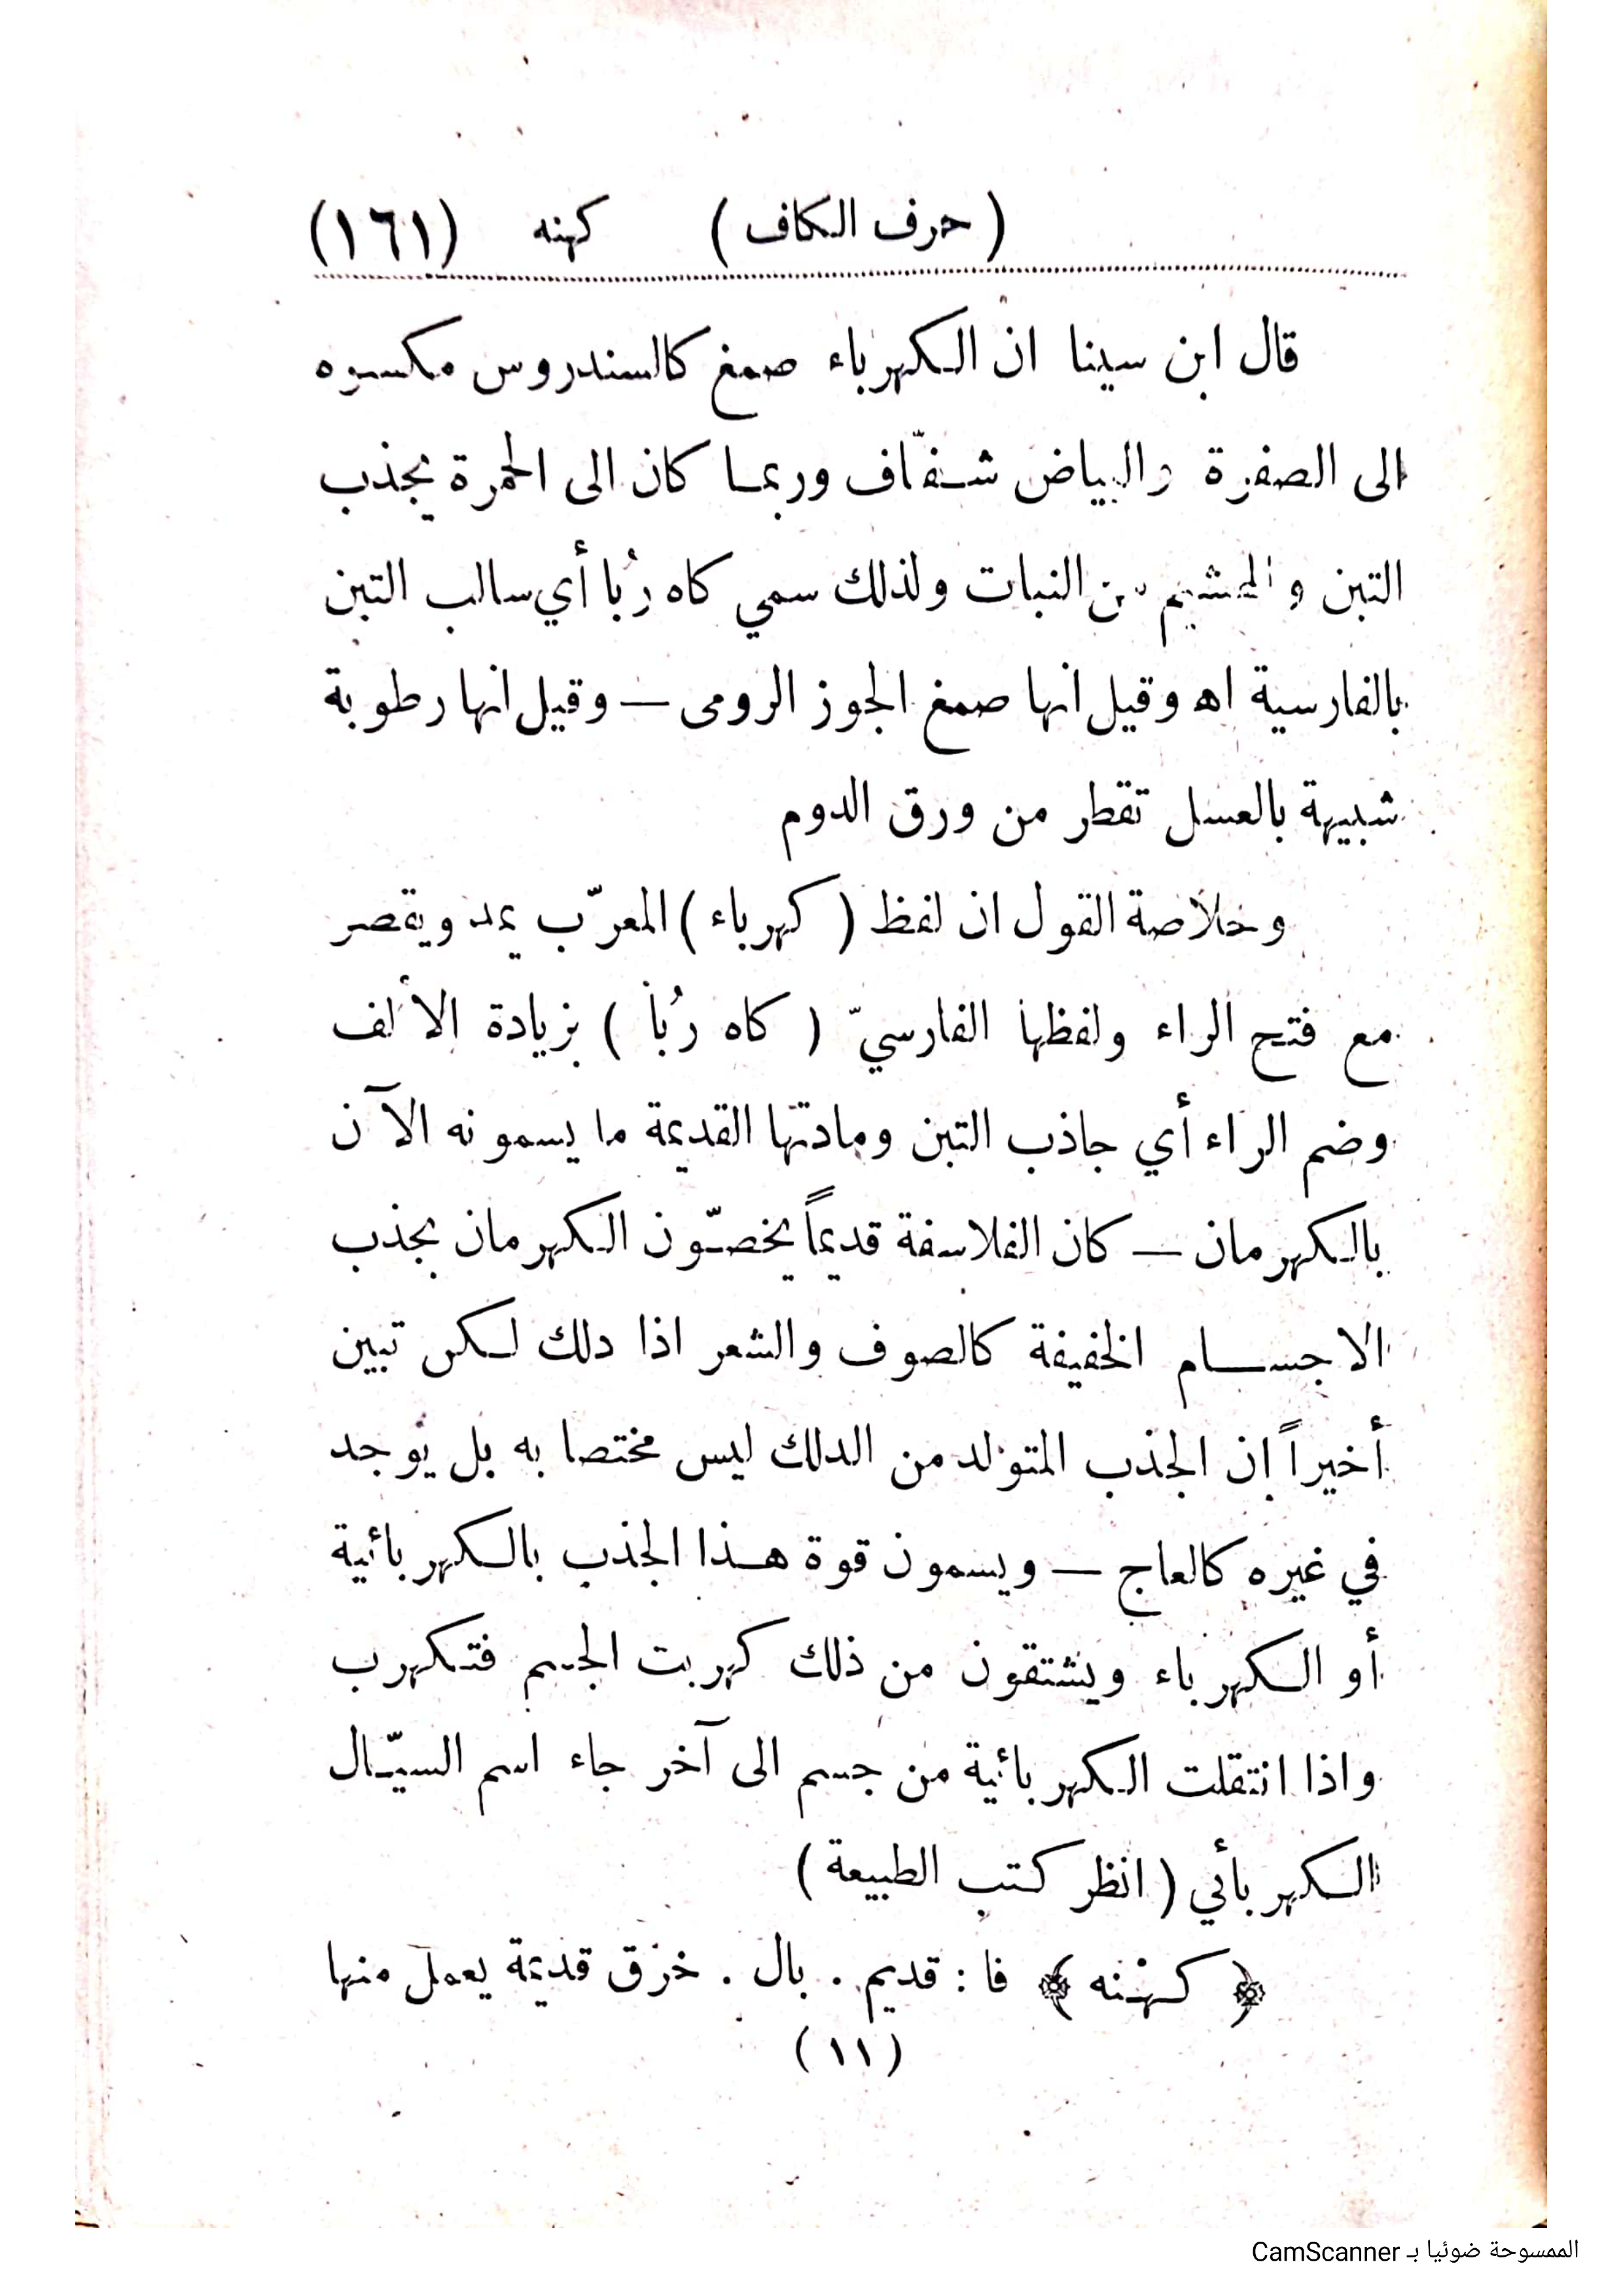 ( حرف الكاف ) كهنه (١٦١)
قال ابن سينا ان الكهرباء صمغ كالسندروس مكسره
الى الصفرة والبياض شفّاف وربما كان الى الحمرة يجذب
التبن والهشيم من النبات ولذلك سمي كاه رُبا أي سالب التبن
بالفارسية اه وقيل انها صمغ الجوز الرومى — وقيل انها رطوبة
شبيهة بالعسل تقطر من ورق الدوم
وخلاصة القول ان لفظ ( كهرباء ) المعرّب يمد ويقصر
مع فتح الراء ولفظها الفارسيّ ( كاه رُبا ) بزيادة الألف
وضم الراء أي جاذب التبن ومادتها القديمة ما يسمونه الآن
بالكهرمان — كان الفلاسفة قديماً يخصّون الكهرمان بجذب
الاجسام الخفيفة كالصوف والشعر اذا دلك لكن تبين
أخيراً إن الجذب المتولد من الدلك ليس مختصا به بل يوجد
في غيره كالعاج — ويسمون قوة هذا الجذب بالكهربائية
أو الكهرباء ويشتقون من ذلك كهربت الجسم فتكهرب
واذا انتقلت الكهربائية من جسم الى آخر جاء اسم السيّال
الكهربأي ( انظر كتب الطبيعة )
﴿ كهْنه ﴾ فا : قديم . بال . خرَق قديمة يعمل منها
( ١١ )
الممسوحة ضوئيا بـ CamScanner